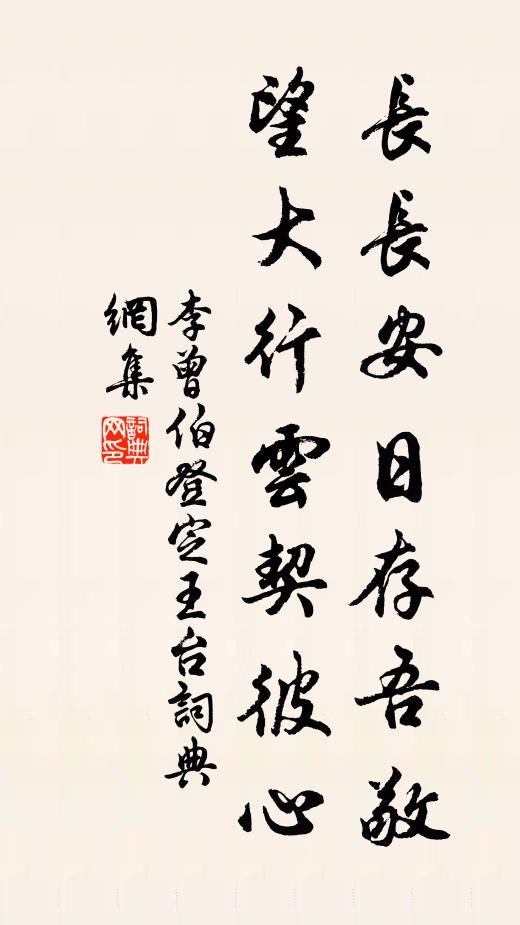 長長安日存吾敬
望大行雲契彼心
李曾伯登定王台詞典
網集
詞典
网印